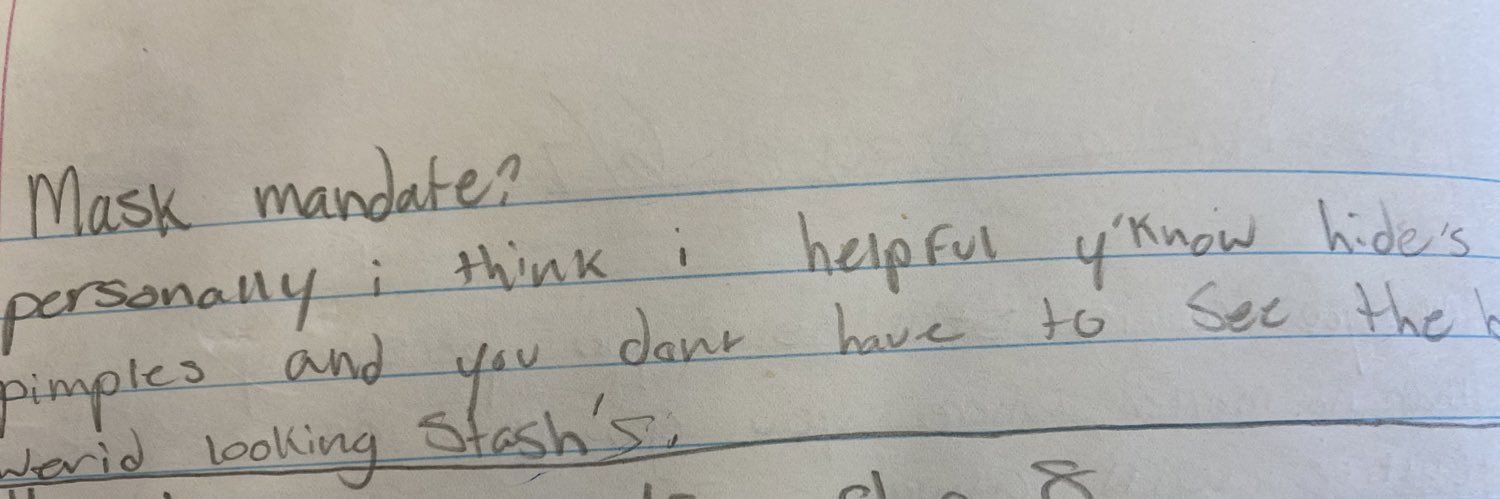 Mask mandate?
personally i think i helpful y'know hide's
pimples and you dont have to see the
werid looking stash's.
8